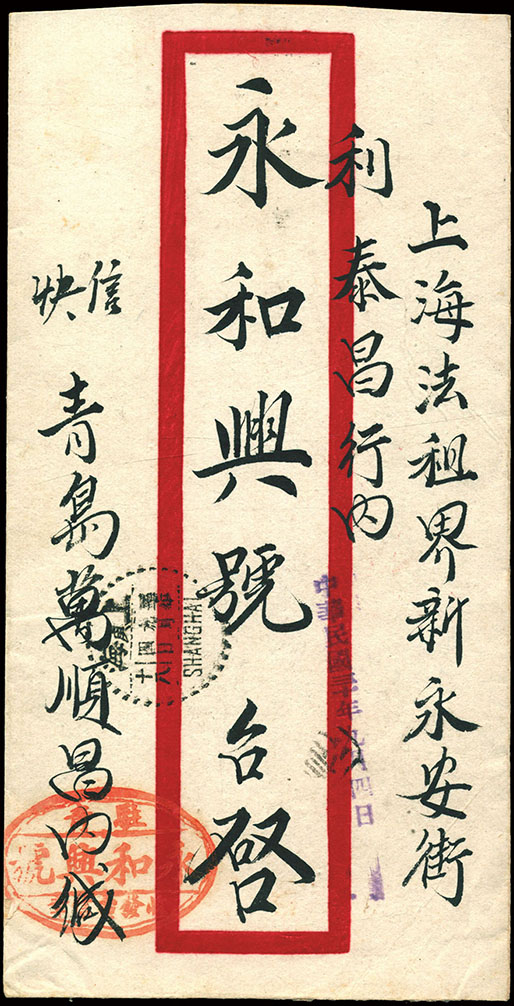 上海法租界新永安街
利泰昌行內
永和興號台啓
快信
青島萬順昌內緘
中華民國三十年九月四日
SHANGHAI
和興號